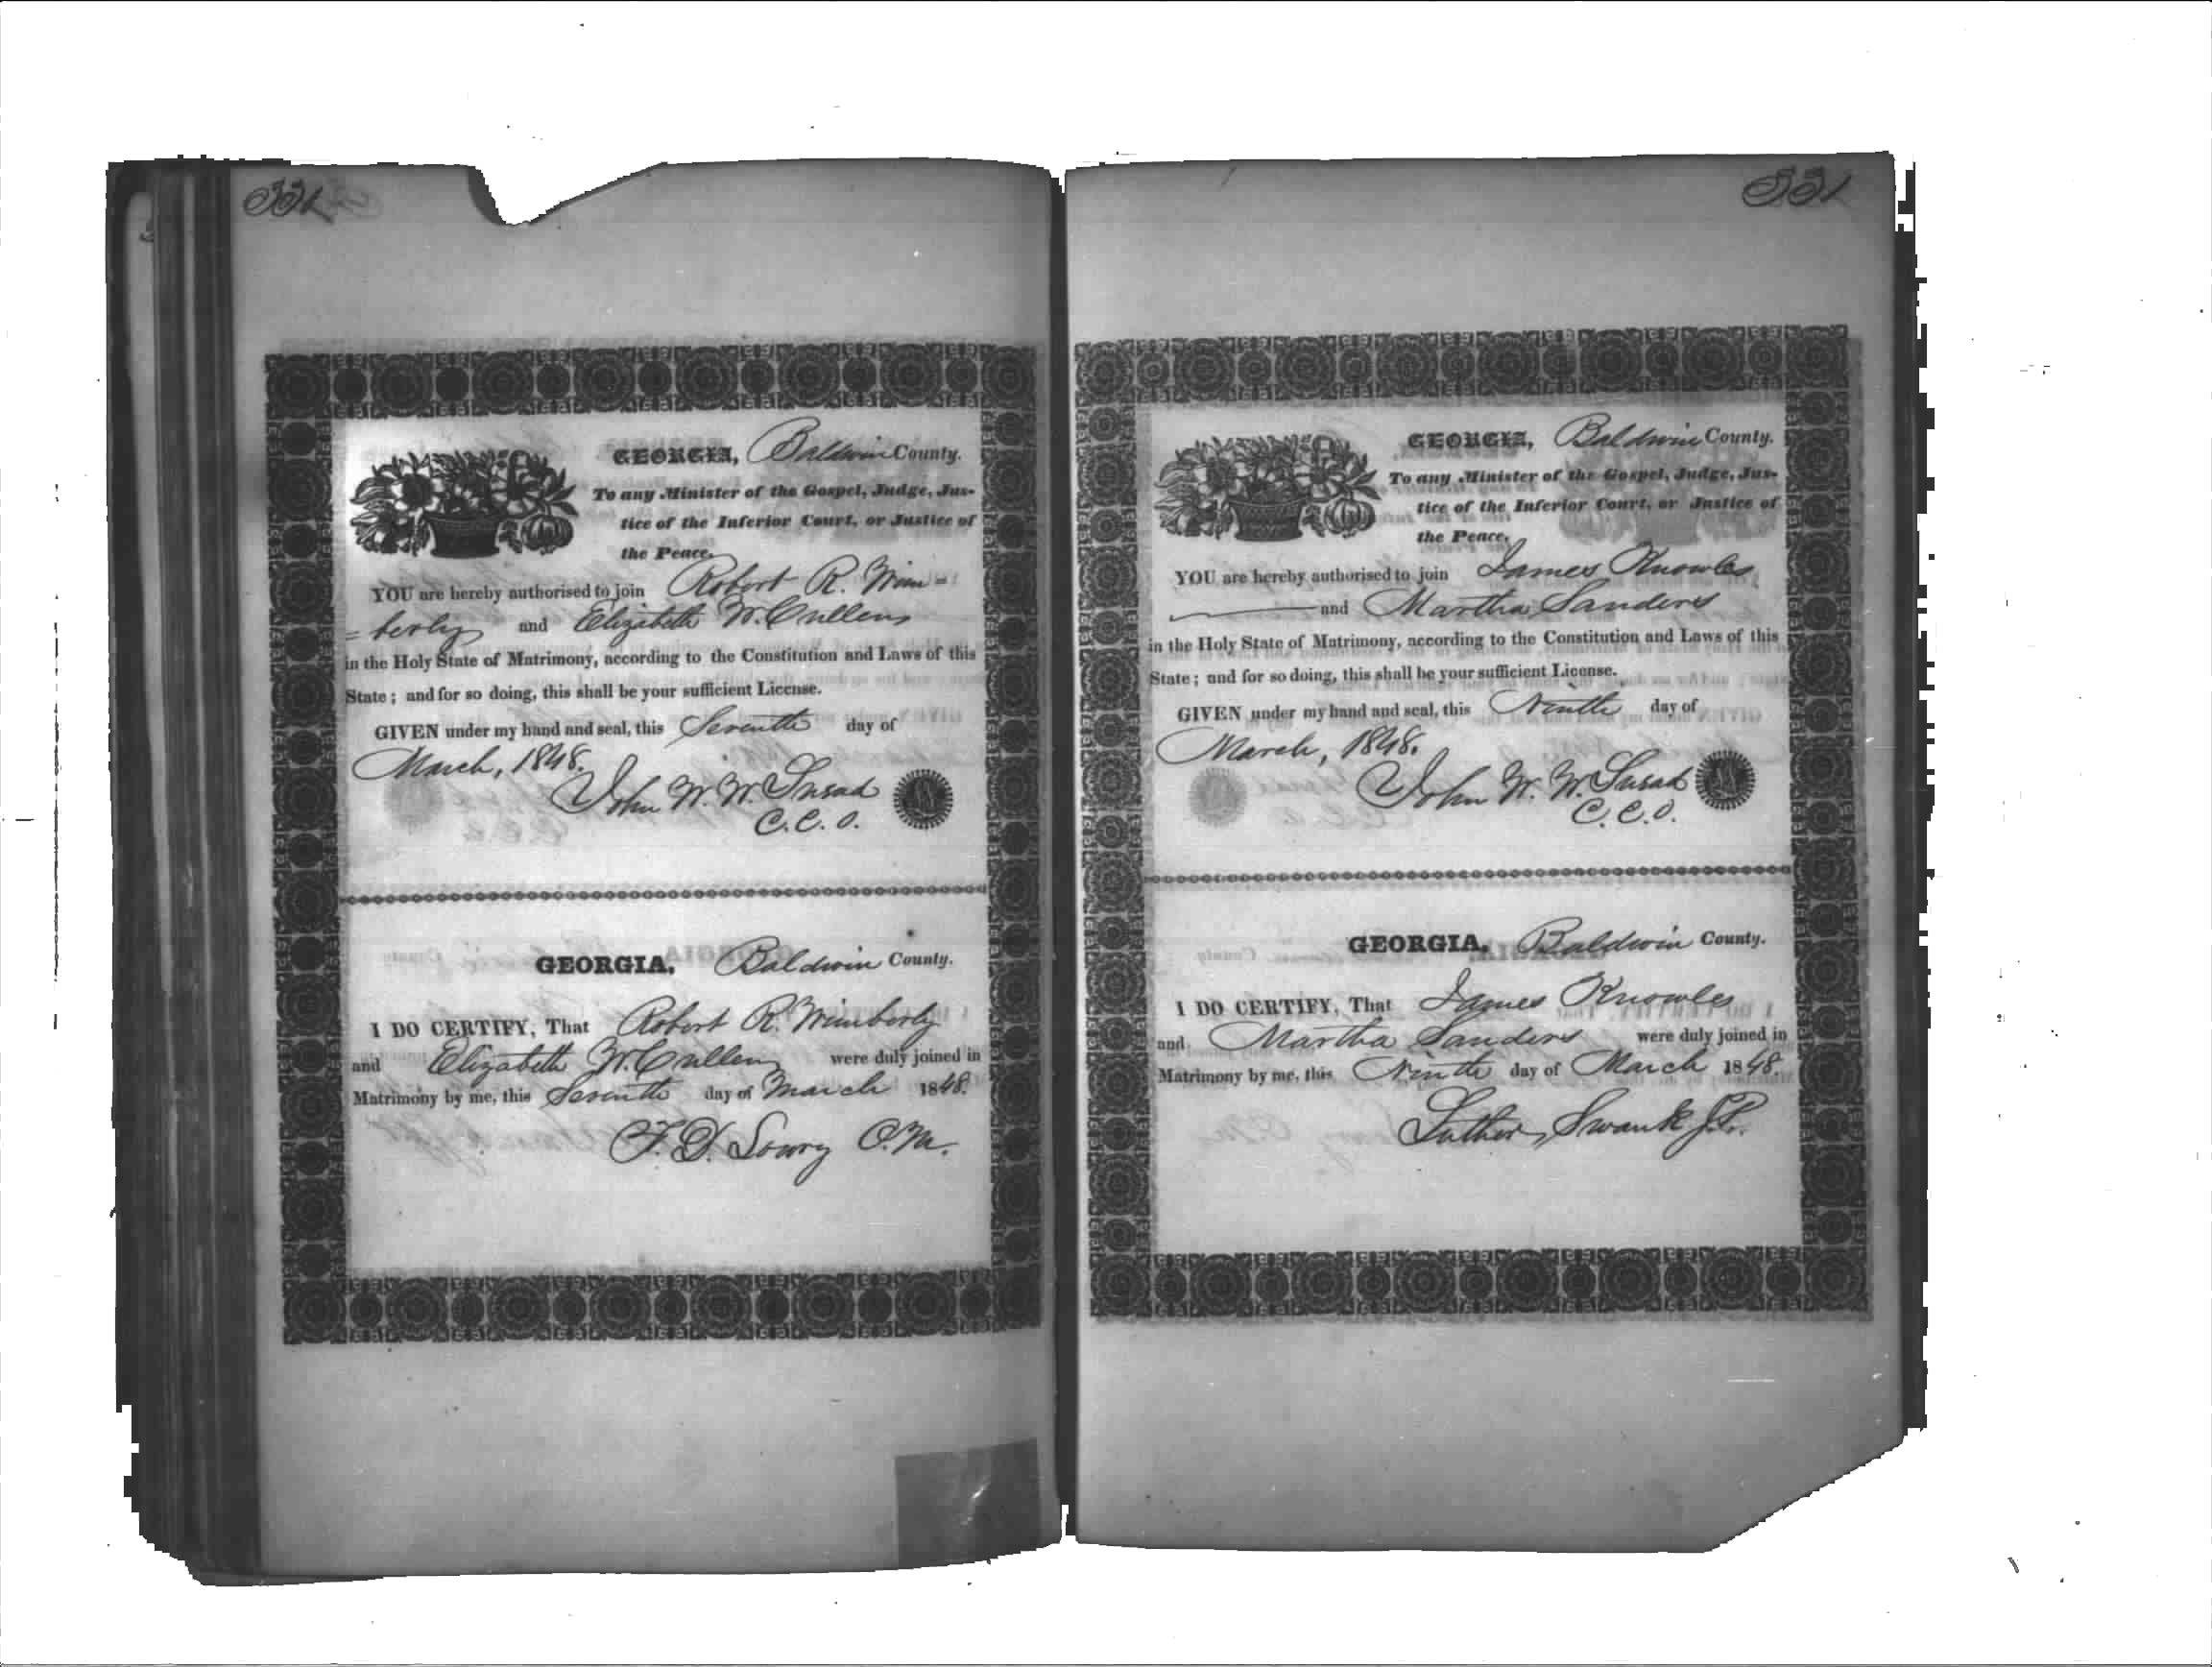 331
GEORGIA, Baldwin County.
To any Minister of the Gospel, Judge, Jus-
tice of the Inferior Court, or Justice of
the Peace.
YOU are hereby authorised to join Robert R. Wim=
=berly and Elizabeth W. Cullens
in the Holy State of Matrimony, according to the Constitution and Laws of this
State; and for so doing, this shall be your sufficient License.
GIVEN under my hand and seal, this Seventh day of
March, 1848.
John W. W.
C. C. O.
GEORGIA, Baldwin County.
I DO CERTIFY, That Robert R. Wimberly
and Elizabeth W. Cullens were duly joined in
Matrimony by me, this Seventh day of March 1848.
F. D. Lowry O.M.
331
GEORGIA, Baldwin County.
To any Minister of the Gospel, Judge, Jus-
tice of the Inferior Court, or Justice of
the Peace.
YOU are hereby authorised to join James Knowles
and Martha Sanders
in the Holy State of Matrimony, according to the Constitution and Laws of this
State; and for so doing, this shall be your sufficient License.
GIVEN under my hand and seal, this Ninth day of
March, 1848.
John W. W.
C. C. O.
GEORGIA, Baldwin County.
I DO CERTIFY, That James Knowles
and Martha Sanders were duly joined in
Matrimony by me, this Ninth day of March 1848.
Luther Swank J.P.